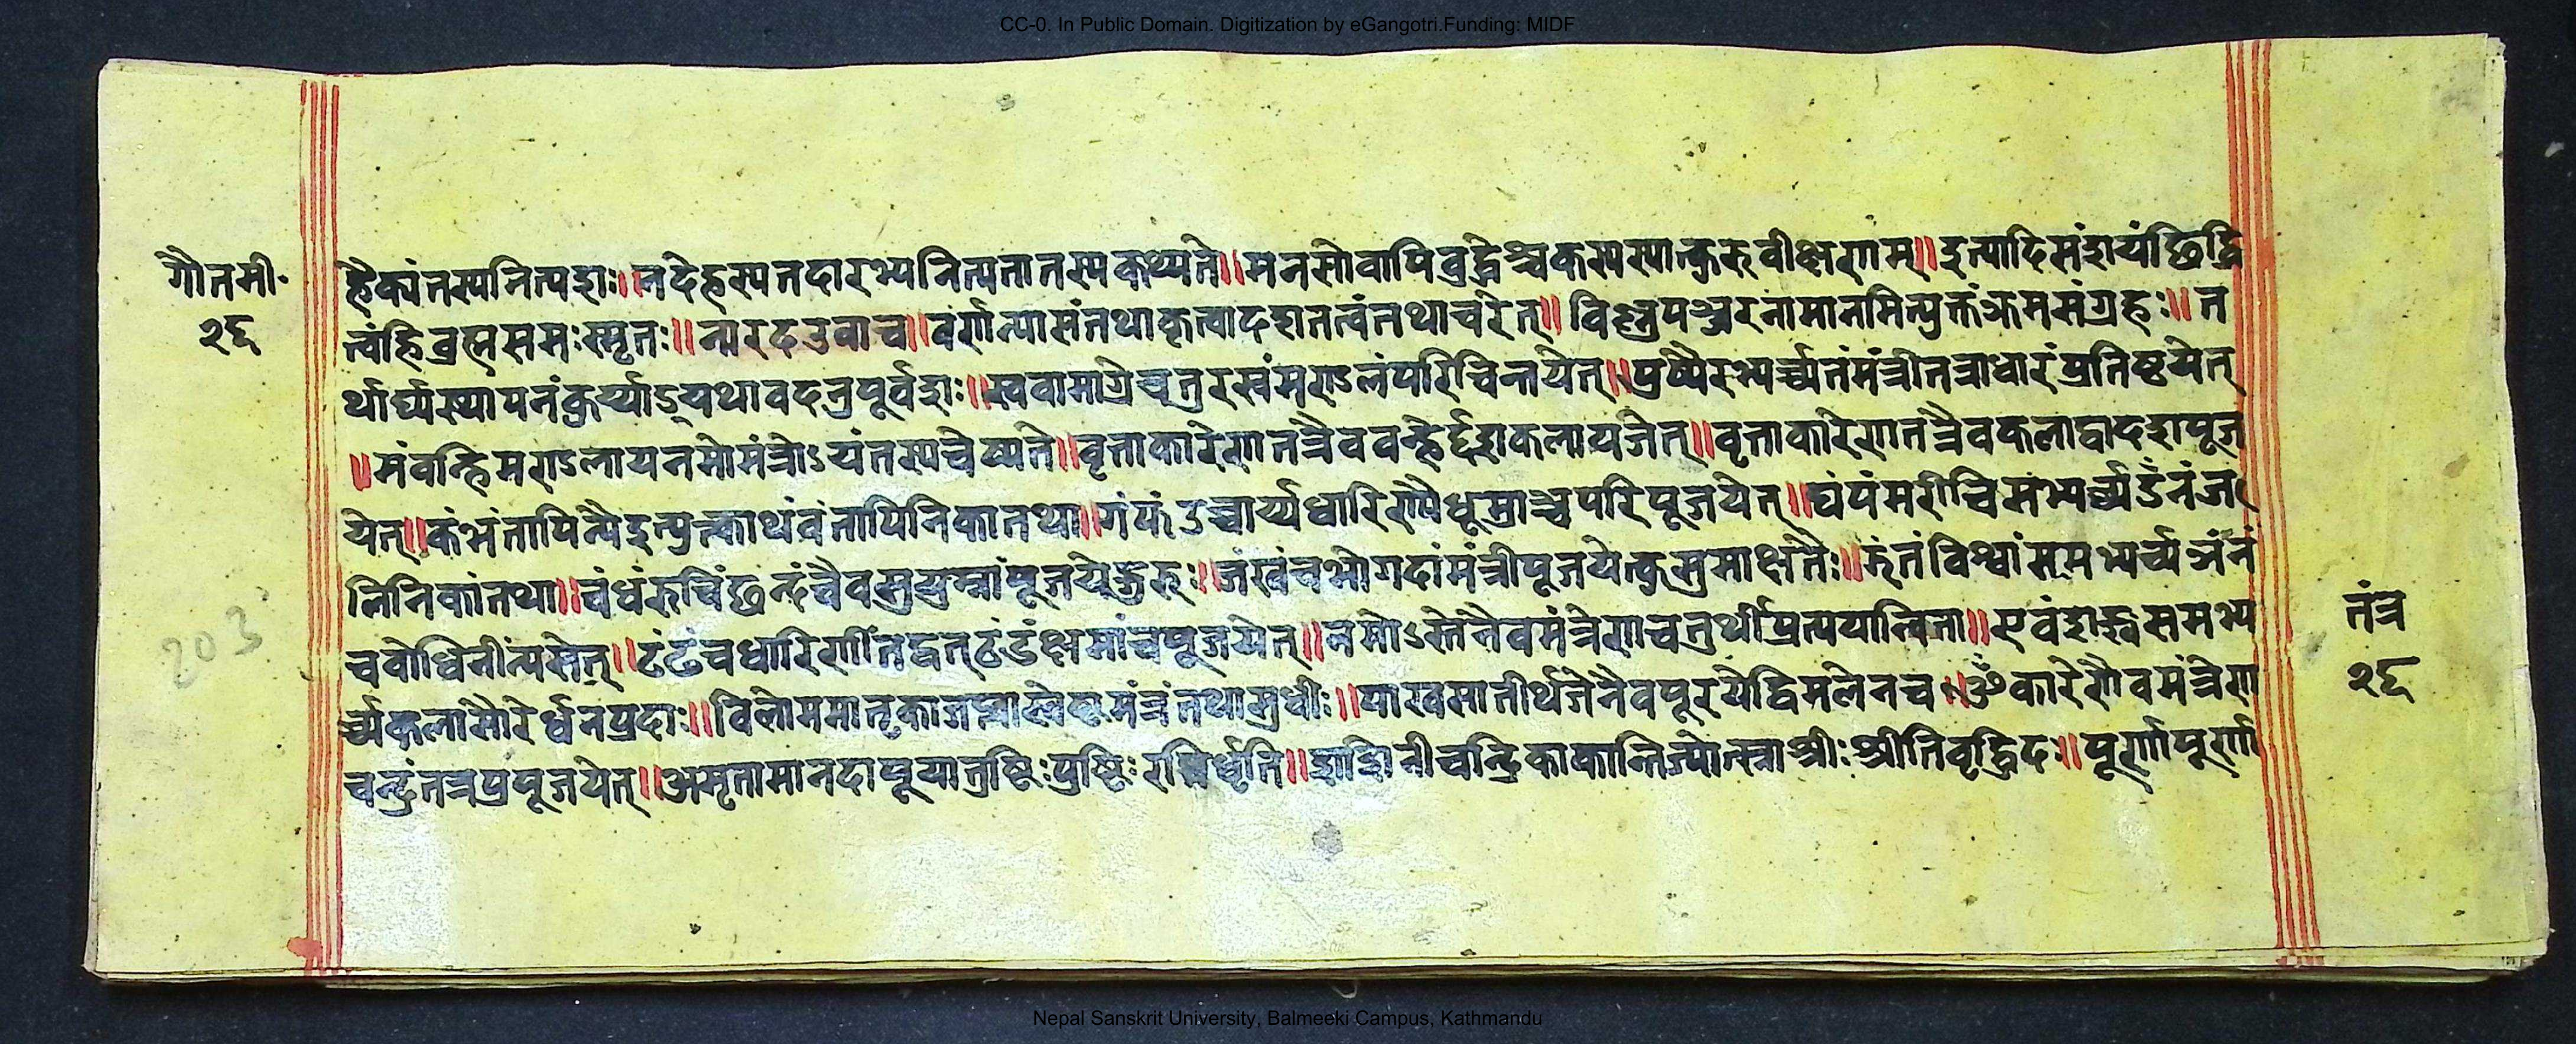 CC-0. In Public Domain. Digitization by eGangotri.Funding: MIDF
गौतमी॰
२६
हैक्यं तस्य नित्यशः॥ न देहस्य तदारभ्य नित्यता तस्य कथ्यते॥ मनसो वापि बुद्धेश्च कस्य स्यात्कुरु वीक्षणम्॥ इत्यादिसंशयं छिद्धि
त्वं हि ब्रह्मसमः स्मृतः॥ नारद उवाच॥ वर्णन्यासं तथा कृत्वा दशतत्त्वं तथाचरेत्॥ विष्णुपञ्जरनामानमित्युक्तं क्रमसंग्रहः॥ त
र्थार्घ्यस्थापनं कुर्य्याद्यथावदनुपूर्वशः॥ स्ववामाग्रे चतुरस्रं मण्डलं परिचिन्तयेत्॥ पुष्पैरभ्यर्च्च्य तं मंत्री तत्राधारं प्रतिष्ठयेत्
॥मं वन्हिमण्डलाय नमो मंत्रोऽयं तस्य चेष्यते॥ वृत्ताकारेण तत्रैव वन्हेर्द्दशकला यजेत्॥ वृत्ताकारेण तत्रैव कला द्वादश पूज
येत्॥ कं भं तापिन्यै इत्युत्क्वाथ वं तापिनिका तथा॥ गं फं उच्चार्य्य धारिण्यै धूम्राञ्च परिपूजयेत्॥ घं पं मरीचिमभ्यर्च्च्य ङं नं ज्वा
लिनिकां तथा॥ चं धं रुचिं छं दं चैव सुषुम्नां पूजयेद्गुरुः॥ जं खं च भोगदां मंत्री पूजयेत्कुसुमाक्षतैः॥ झं तं विश्वां समभ्यर्च्य ञं नं
च बोधिनीं न्यसेत्॥ टं ढं च धारिणीं तद्वत् ठं डं क्षमां च पूजयेत्॥ नमोऽस्तेनैव मंत्रेण चतुर्थीप्रत्ययान्विता॥ एवं शङ्ख समभ्य
र्च्च्य कला सौरेर्धनप्रदाः॥ विलोममातृका
चन्द्रं तत्र प्रपूजयेत्॥ अमृता मानदा पूषा तुष्टिः पुष्टिः रतिर्धृति॥ शशिनी चन्द्रिका कान्तिर्ज्योत्स्ना श्रीः प्रीति वृद्धिदः॥ पूर्णा पूर्णा
तंत्र
२६
203
Nepal Sanskrit University, Balmeeki Campus, Kathmandu